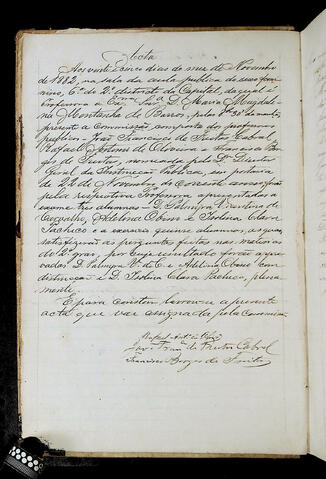 Acta
Aos vinte e cinco dias do mez de Novembro
de 1882, na sala da aula publica do sexo femi-
nino, 6ª do 2º districto da Capital, da qual é
Professora a Exma Snra D. Maria Magdale-
na Montanha de Barros, pelas 9 30 da manhã,
presente a Commissão, composta dos professores
publicos José Francisco de Freitas Cabral,
Rafael Antonio de Oliveira e Francisco Bor-
ges de Freitas, nomeada pelo Dr. Director
Geral da Instrucção Publica, em portaria
de 22 de Novembro do corrente anno, forão
pela respectiva Professora apresentadas a
exame tres alumnas — D. Palmyra Ventura de
Carvalho, Adelina e Isolina Clara
Pacheco e a exercicio quinze alumnas, as quaes
satisfizerão as perguntas feitas nas materias
do 2º grau, por cujo resultado forão appro-
vadas D. Palmyra Vª de C. e Adelina com
distincção e D. Isolina Clara Pacheco, plena-
mente.
E para constar lavrou-se a presente
acta que vae assignada pela Commissão.
Rafael Antº de Olivª
José Franco de Freitas Cabral
Francisco Borges de Freitas